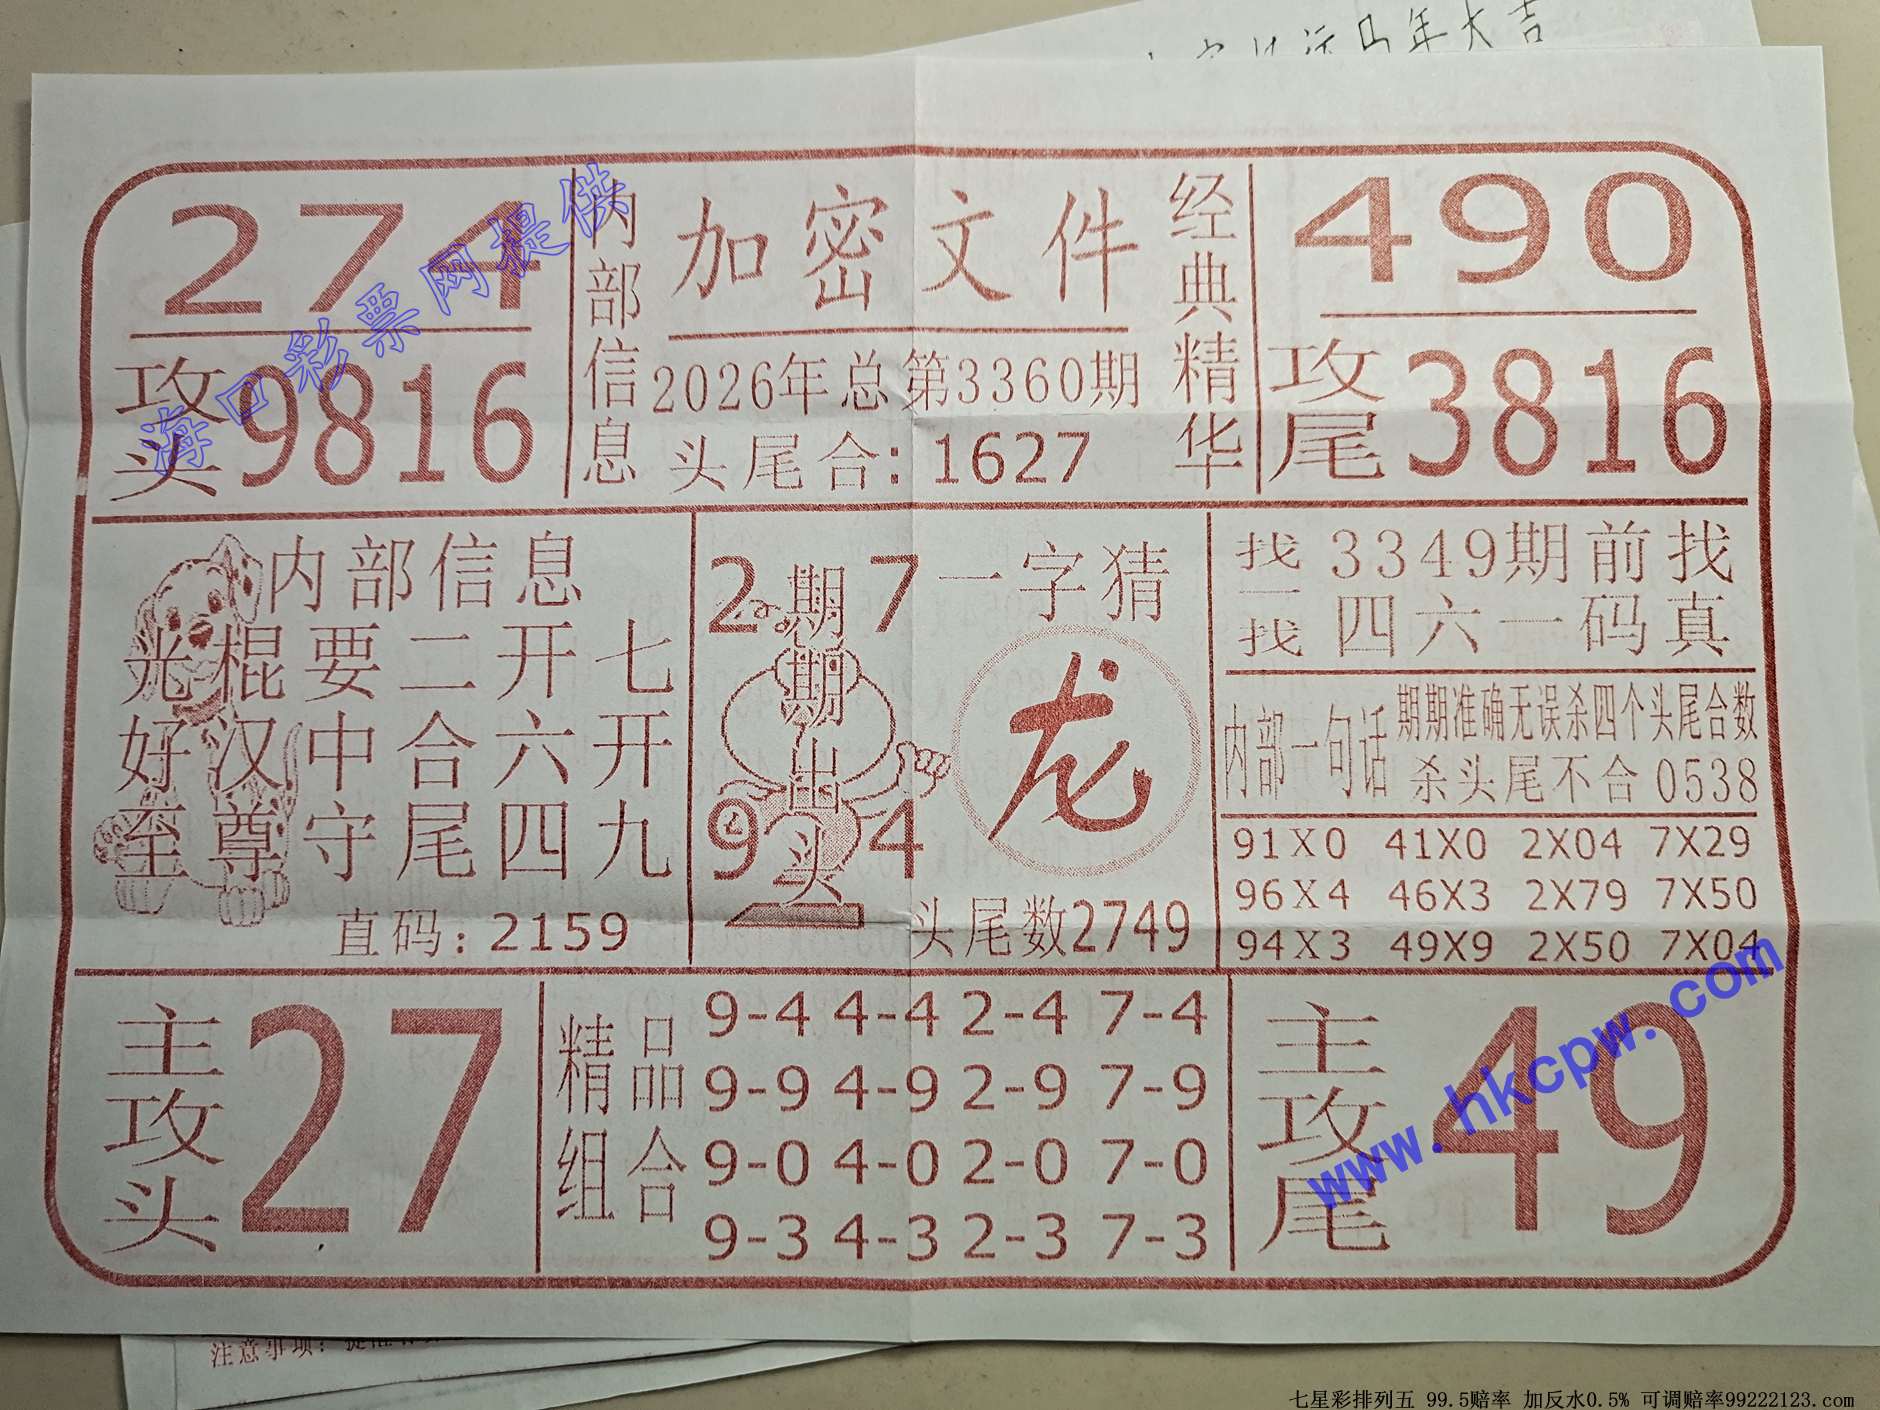 大吉
274
攻头 9816
内部信息
加密文件
2026年总第3360期
头尾合：1627
经典精华
490
攻尾 3816
海口彩票网提供
内部信息
光棍要二开七
好汉中合六开
至尊守尾四九
直码：2159
2 7
期期出头
9 4
一字猜
龙
头尾数2749
找一找
3349期前找
四六一码真
内部一句话
期期准确无误杀四个头尾合数
杀头尾不合 0538
91X0 41X0 2X04 7X29
96X4 46X3 2X79 7X50
94X3 49X9 2X50 7X04
主攻头
27
精品组合
9-4 4-4 2-4 7-4
9-9 4-9 2-9 7-9
9-0 4-0 2-0 7-0
9-3 4-3 2-3 7-3
主攻尾
49
www.hkcpw.com
注意事项：
七星彩排列五 99.5赔率 加反水0.5% 可调赔率99222123.com